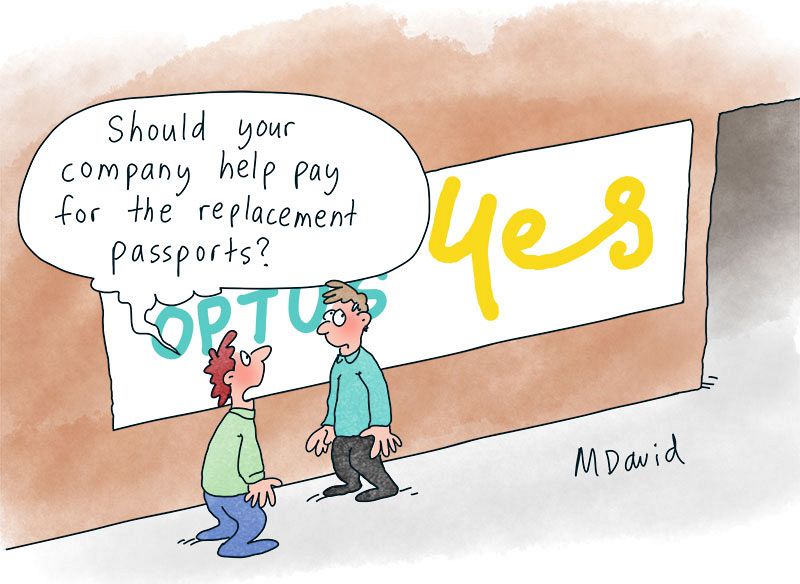 Should your
company help pay
for the replacement
passports?
OPTUS
yes
MDavid